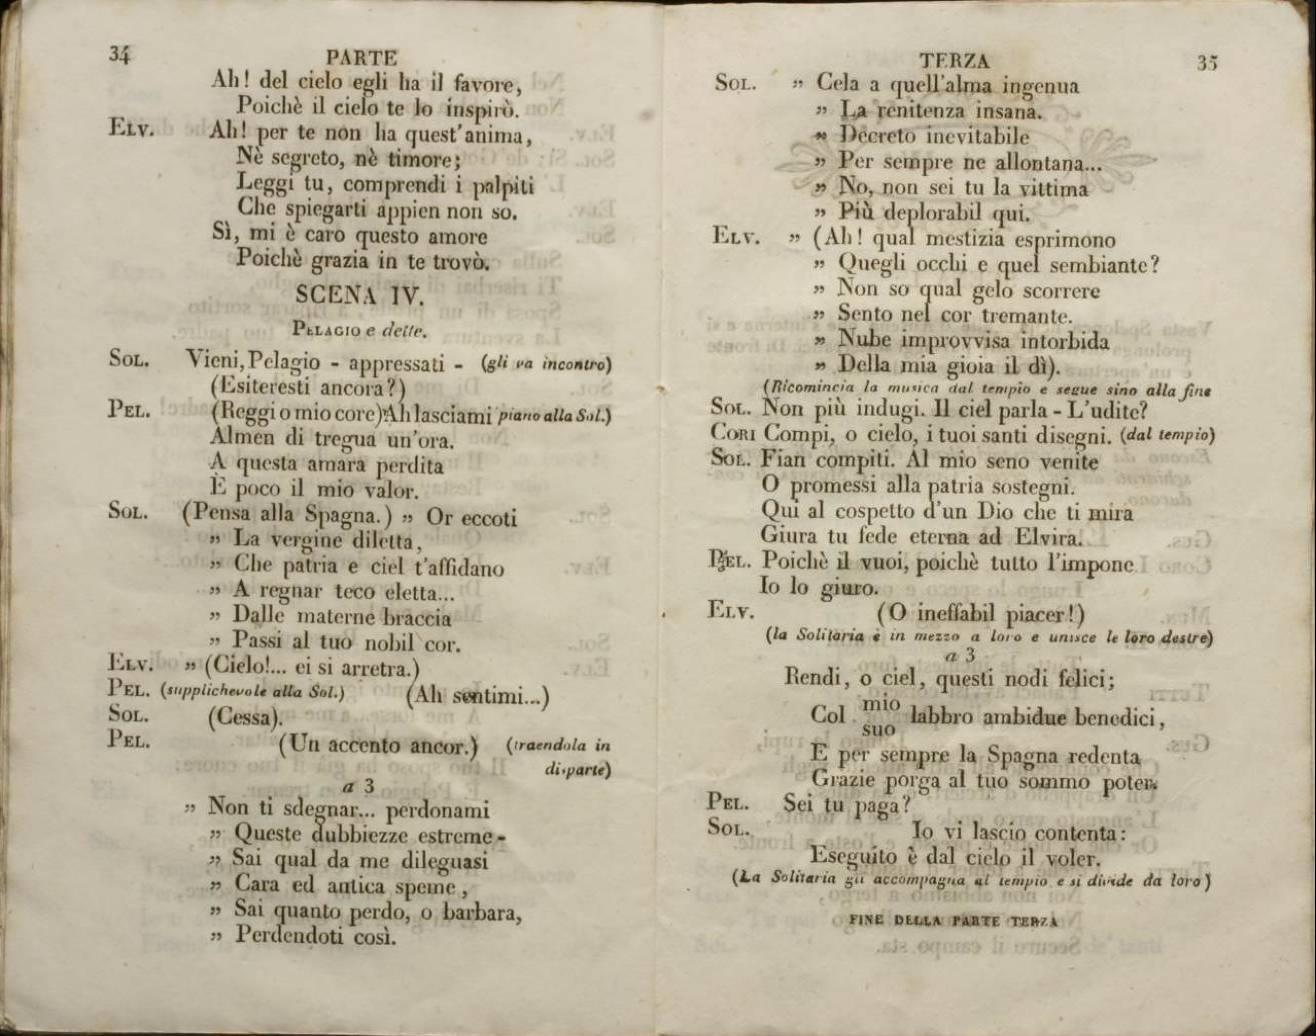 34
PARTE
Ah! del cielo egli ha il favore,
Poichè il cielo te lo inspirò.
ELV. Ah! per te non ha quest'anima,
Nè segreto, nè timore;
Leggi tu, comprendi i palpiti
Che spiegarti appien non so.
Sì, mi è caro questo amore
Poichè grazia in te trovò.
SCENA IV.
PELAGIO e dette.
SOL. Vieni, Pelagio - appressati - (gli va incontro)
(Esiteresti ancora?)
PEL. (Reggi o mio core) Ah lasciami piano alla Sol.)
Almen di tregua un'ora.
A questa amara perdita
È poco il mio valor.
SOL. (Pensa alla Spagna.) „ Or eccoti
„ La vergine diletta,
„ Che patria e ciel t'affidano
„ A regnar teco eletta...
„ Dalle materne braccia
„ Passi al tuo nobil cor.
ELV. „ (Cielo!... ei si arretra.)
PEL. (supplichevole alla Sol.) (Ah sentimi...)
SOL. (Cessa).
PEL. (Un accento ancor.) (traendola in
disparte)
a 3
„ Non ti sdegnar... perdonami
„ Queste dubbiezze estreme -
„ Sai qual da me dileguasi
„ Cara ed antica speme,
„ Sai quanto perdo, o barbara,
„ Perdendoti così.
TERZA
35
SOL. „ Cela a quell'alma ingenua
„ La renitenza insana.
„ Decreto inevitabile
„ Per sempre ne allontana...
„ No, non sei tu la vittima
„ Più deplorabil qui.
ELV. „ (Ah! qual mestizia esprimono
„ Quegli occhi e quel sembiante?
„ Non so qual gelo scorrere
„ Sento nel cor tremante.
„ Nube improvvisa intorbida
„ Della mia gioia il dì).
(Ricomincia la musica dal tempio e segue sino alla fine
SOL. Non più indugi. Il ciel parla - L'udite?
CORI Compi, o cielo, i tuoi santi disegni. (dal tempio)
SOL. Fian compiti. Al mio seno venite
O promessi alla patria sostegni.
Qui al cospetto d'un Dio che ti mira
Giura tu fede eterna ad Elvira.
PEL. Poichè il vuoi, poichè tutto l'impone
Io lo giuro.
ELV. (O ineffabil piacer!)
(la Solitaria è in mezzo a loro e unisce le loro destre)
a 3
Rendi, o ciel, questi nodi felici;
Col mio labbro ambidue benedici,
suo
E per sempre la Spagna redenta
Grazie porga al tuo sommo poter.
PEL. Sei tu paga?
SOL. Io vi lascio contenta:
Eseguito è dal cielo il voler.
(La Solitaria gli accompagna al tempio e si divide da loro)
FINE DELLA PARTE TERZA